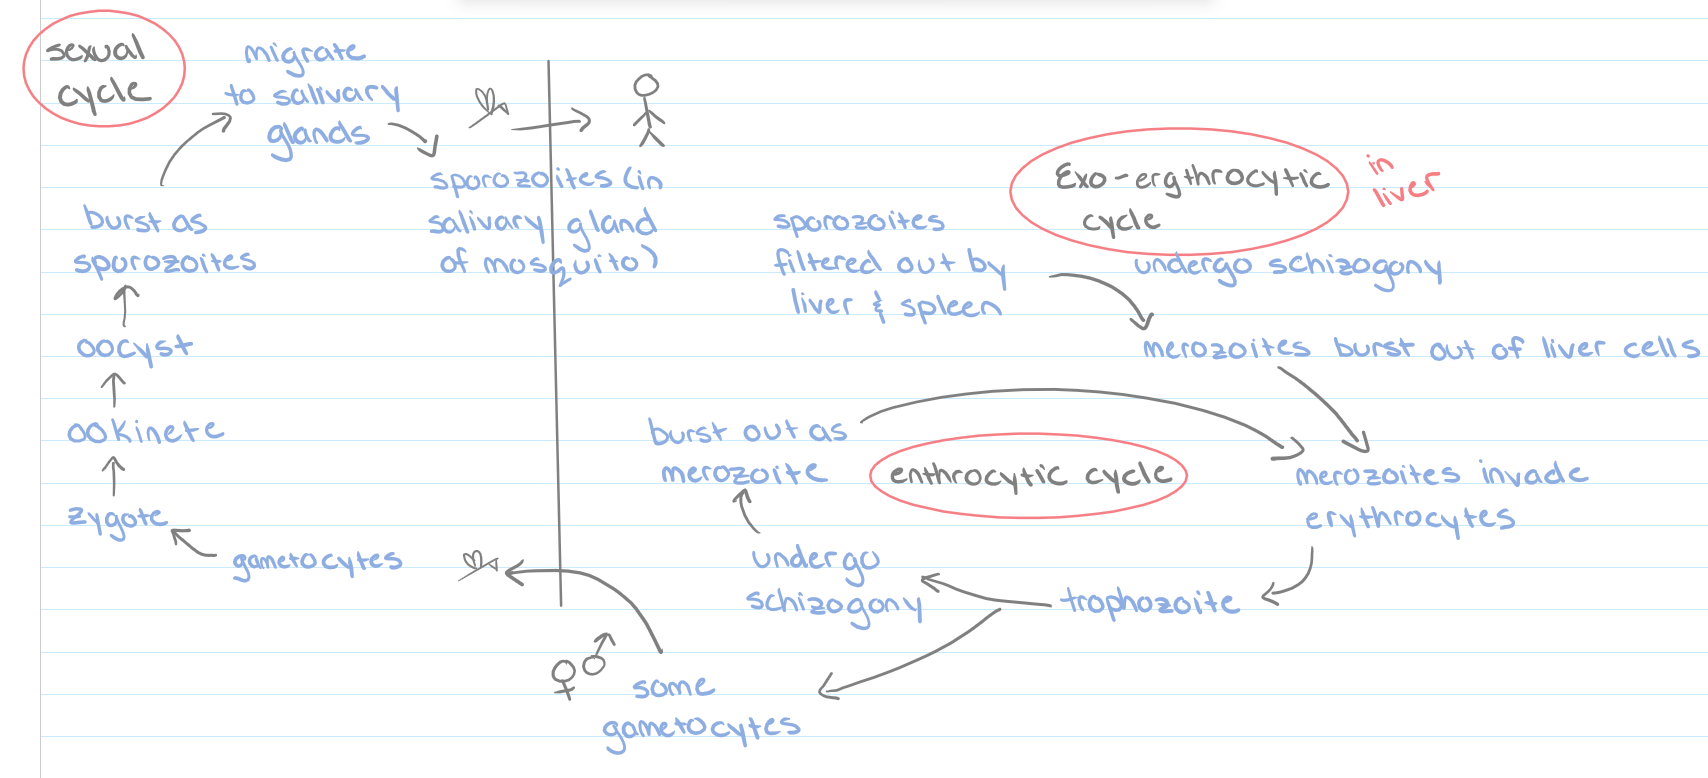 sexual
cycle
migrate
to salivary
glands
sporozoites (in
salivary gland
of mosquito)
burst as
sporozoites
oocyst
ookinete
zygote
gametocytes
Exo-ergthrocytic
cycle
in
liver
sporozoites
filtered out by
liver & spleen
undergo schizogony
merozoites burst out of liver cells
burst out as
merozoite
enthrocytic cycle
merozoites invade
erythrocytes
undergo
schizogony
trophozoite
♀♂ some
gametocytes